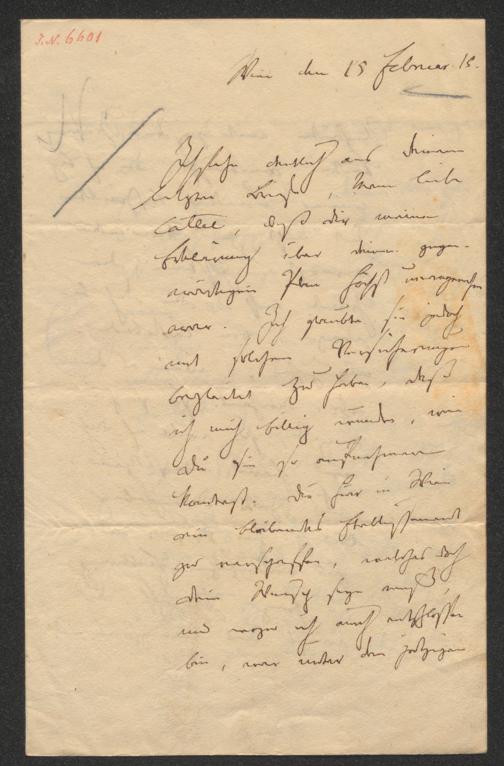 J.N. 6601
Wien den 15 Februar 15.
Ich sehe deutlich aus Deinem
letzten Briefe, mein lieber
Cattel, daß dir meine
Erklärung über deinen gegen-
wärtigen Plan höchst unangenehm
war. Ich glaubte sie jedoch
mit solchen Versicherungen
begleitet zu haben, daß
ich mich billig wundre, wie
Du sie so aufnehmen
konntest. Dir hier in Wien
ein bleibendes Etablissement
zu verschaffen, welches doch
Dein Wunsch seyn muß,
und wozu ich auch entschlossen
bin, war unter den jetzigen